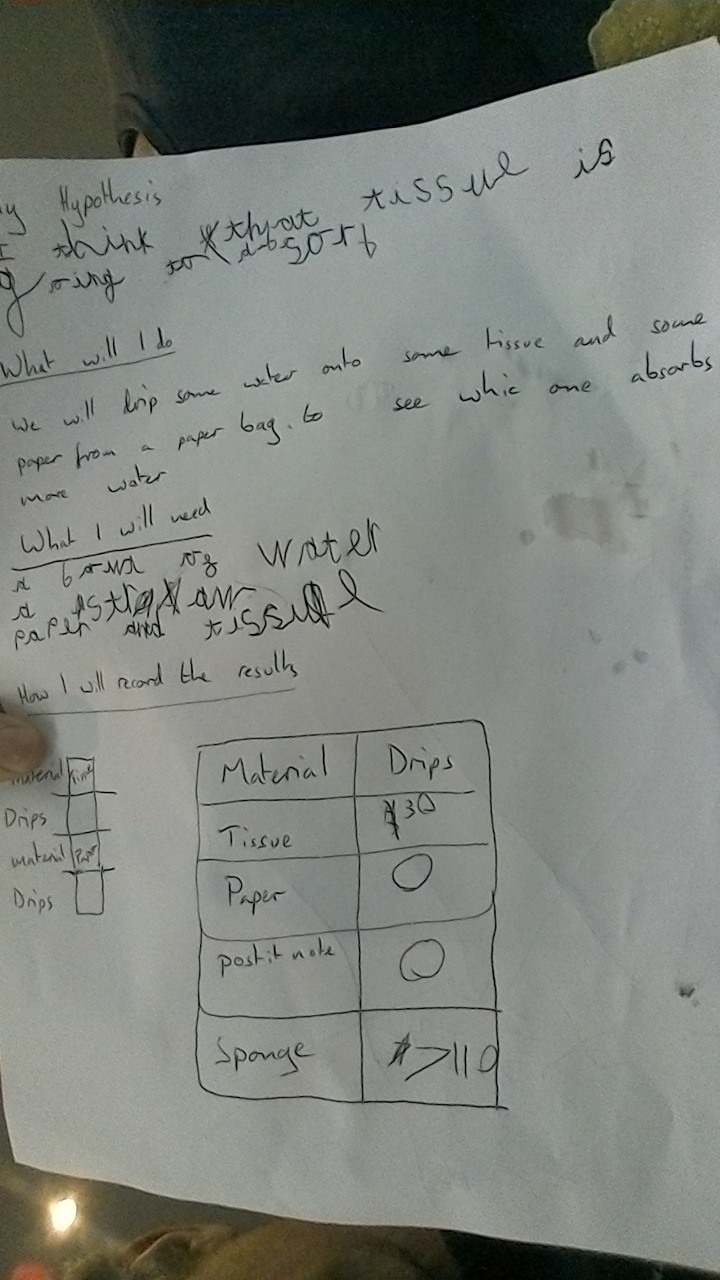 y Hypothesis
I think that tissue is
going to absorb
What will I do
We will drip some water onto some tissue and some
paper from a paper bag. to see whic one absorbs
more water
What I will need
a of water
a straw
paper and tissue
How I will record the results
Material
Drips
material
Drips
Material Drips
Tissue 30
Paper 0
post it note 0
Sponge >110